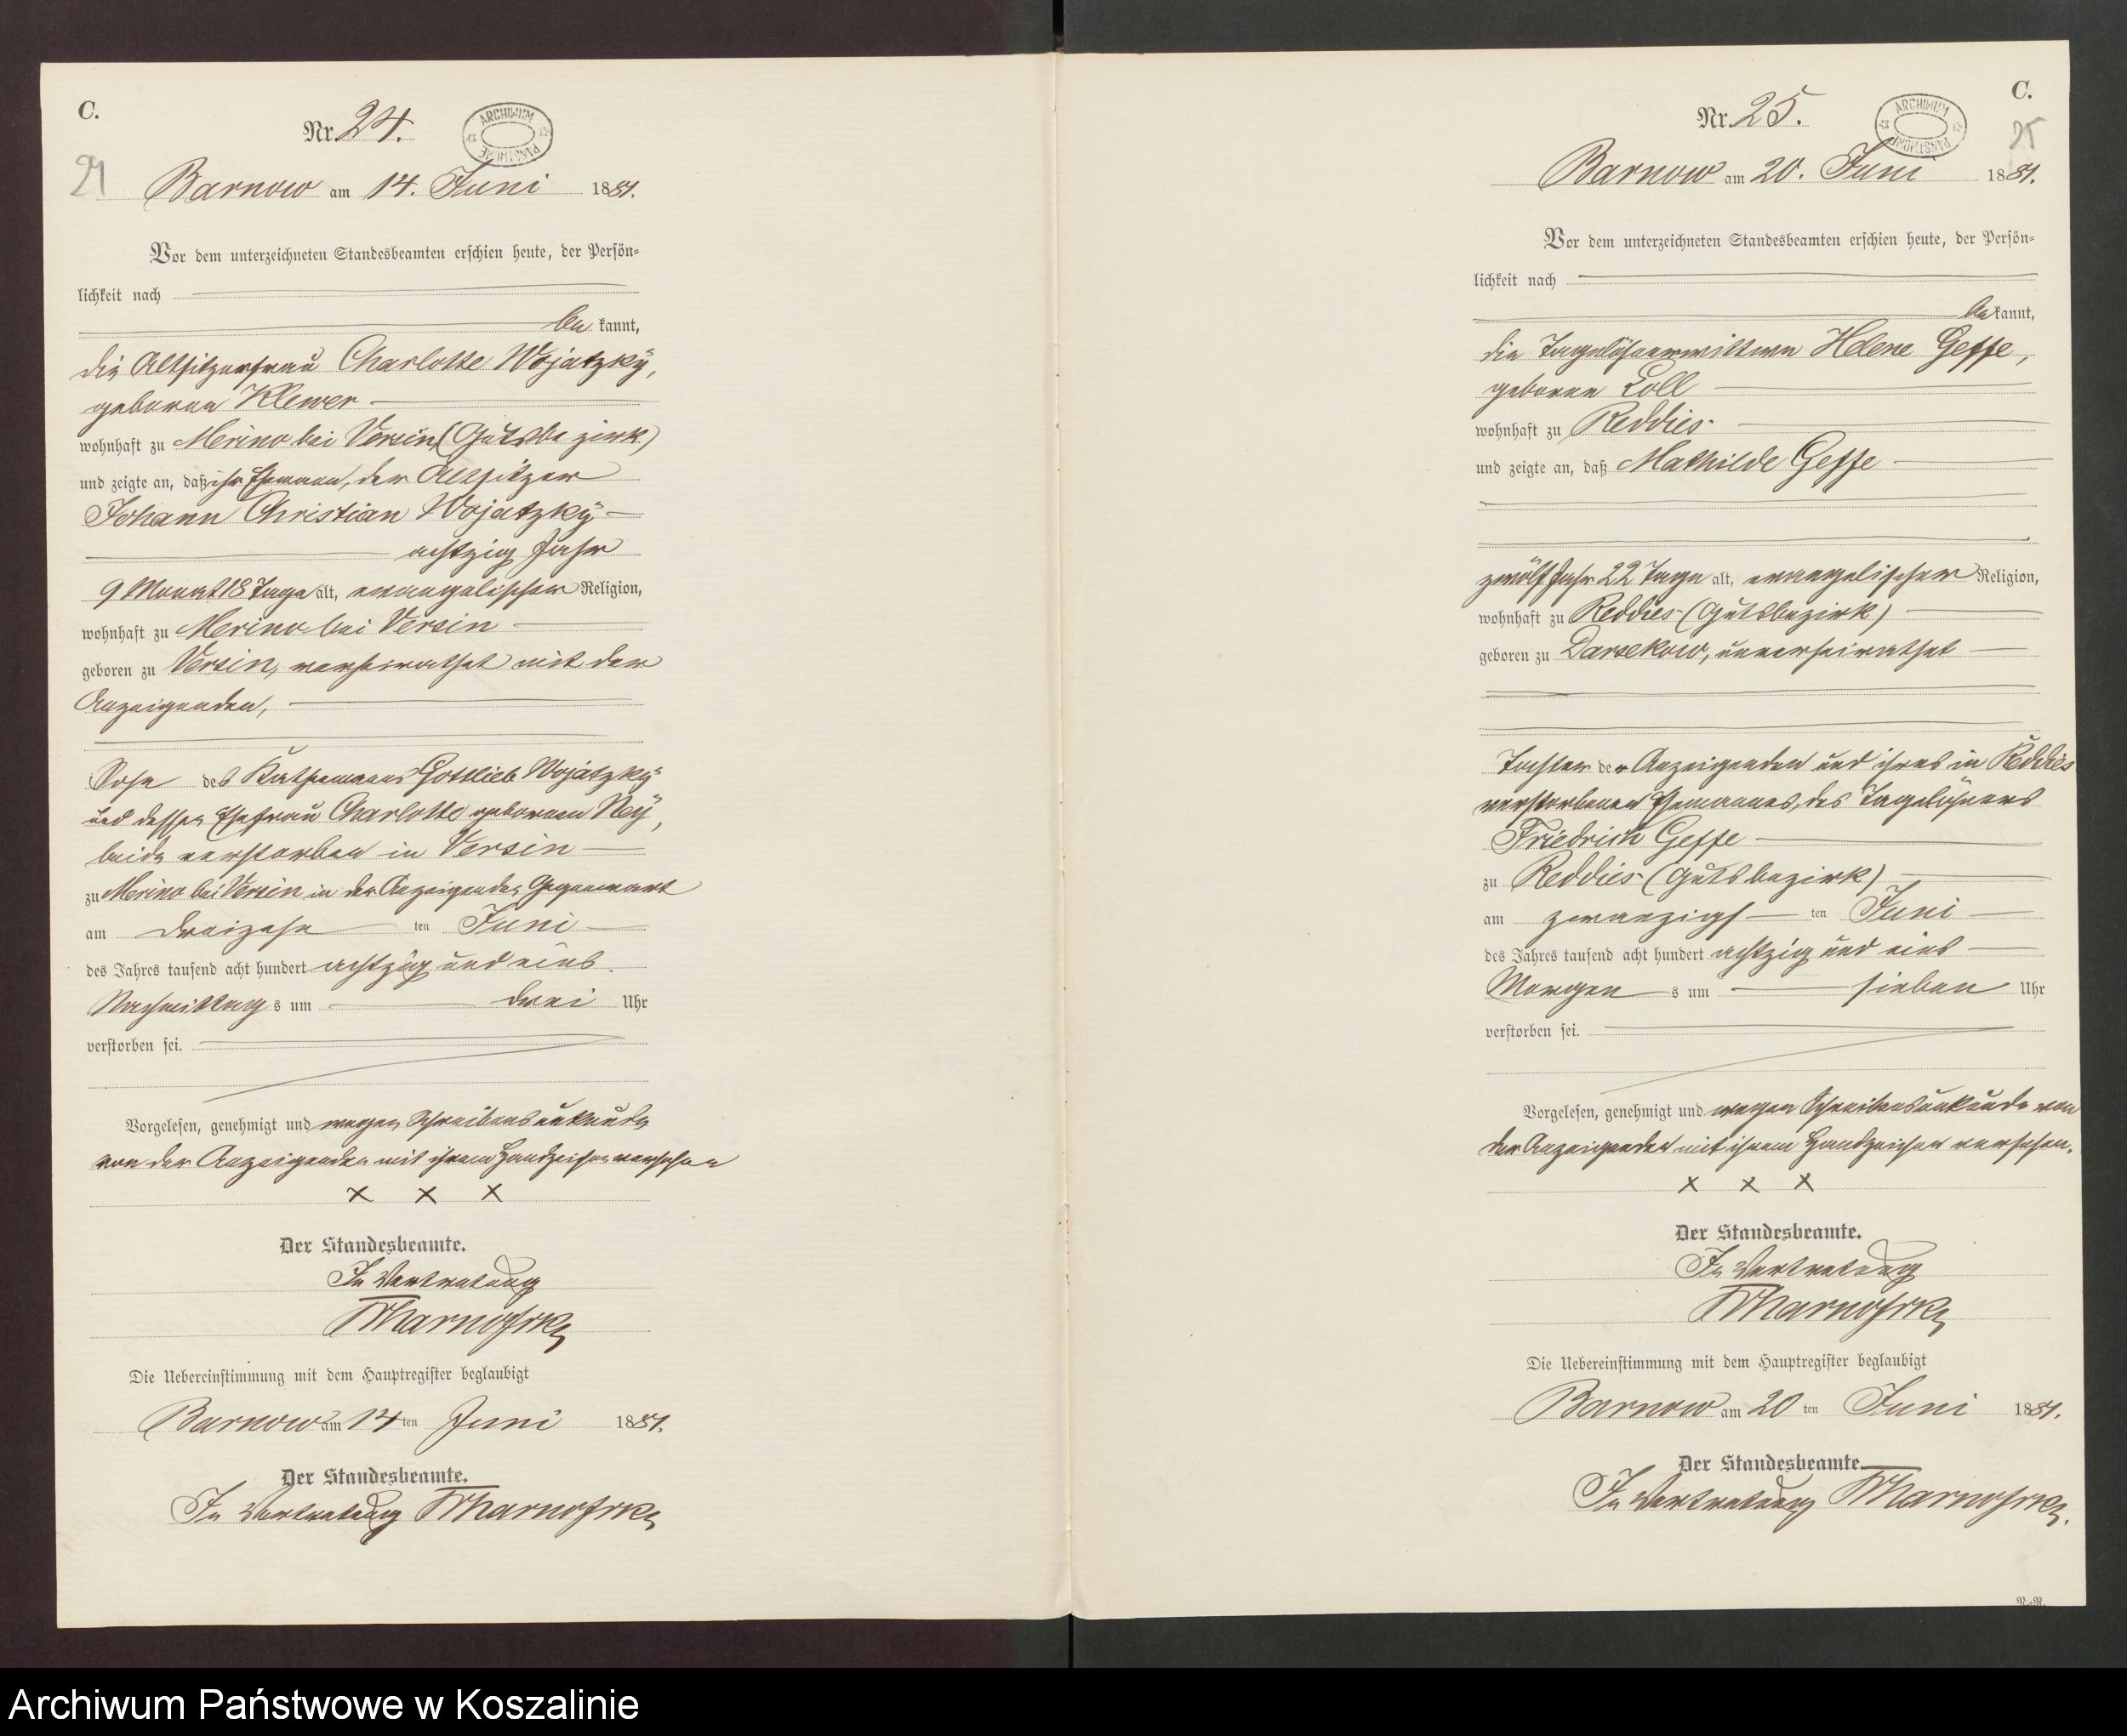 C.
Nr. 24.
ARCHIWUM PAŃSTWOWE
24
Barnow am 14. Juni 1881.
Vor dem unterzeichneten Standesbeamten erschien heute, der Persön-
lichkeit nach
be kannt,
die Altsitzerfrau Charlotte Wojatzky,
geborene Klewer
wohnhaft zu Merino bei Versin (Gutsbezirk)
und zeigte an, daß ihr Ehemann, der Altsitzer
Johann Christian Wojatzky
achtzig Jahr
9 Monat 18 Tage alt, evangelischer Religion,
wohnhaft zu Merino bei Versin
geboren zu Versin, verheirathet mit der
Anzeigenden,
Sohn des Kathenmanns Gottlieb Wojatzky
und dessen Ehefrau Charlotte geborenen Ney,
beide verstorben in Versin
zu Merino bei Versin in der Anzeigenden Gegenwart
am dreizehn ten Juni
des Jahres tausend acht hundert achtzig und eins
Nachmittag s um drei Uhr
verstorben sei.
Vorgelesen, genehmigt und wegen Schreibensunkunde
von der Anzeigenden mit ihrem Handzeichen versehen
x x x
Der Standesbeamte.
In Vertretung
Die Uebereinstimmung mit dem Hauptregister beglaubigt
Barnow am 14 ten Juni 1881.
Der Standesbeamte.
In Vertretung
C.
Nr. 25.
ARCHIWUM PAŃSTWOWE
25
Barnow am 20. Juni 1881.
Vor dem unterzeichneten Standesbeamten erschien heute, der Persön-
lichkeit nach
be kannt,
die Tagelöhnerwittwe Helene Geffe,
geborene Loll
wohnhaft zu Reddies
und zeigte an, daß Mathilde Geffe
zwölf Jahr 22 Tage alt, evangelischer Religion,
wohnhaft zu Reddies (Gutsbezirk)
geboren zu Darsekow, unverheirathet
Tochter der Anzeigenden und ihres in Reddies
verstorbenen Ehemannes, des Tagelöhners
Friedrich Geffe
zu Reddies (Gutsbezirk)
am zwanzigs ten Juni
des Jahres tausend acht hundert achtzig und eins
Morgen s um sieben Uhr
verstorben sei.
Vorgelesen, genehmigt und wegen Schreibensunkunde von
der Anzeigenden mit ihrem Handzeichen versehen.
x x x
Der Standesbeamte.
In Vertretung
Die Uebereinstimmung mit dem Hauptregister beglaubigt
Barnow am 20 ten Juni 1881.
Der Standesbeamte.
In Vertretung
Archiwum Państwowe w Koszalinie